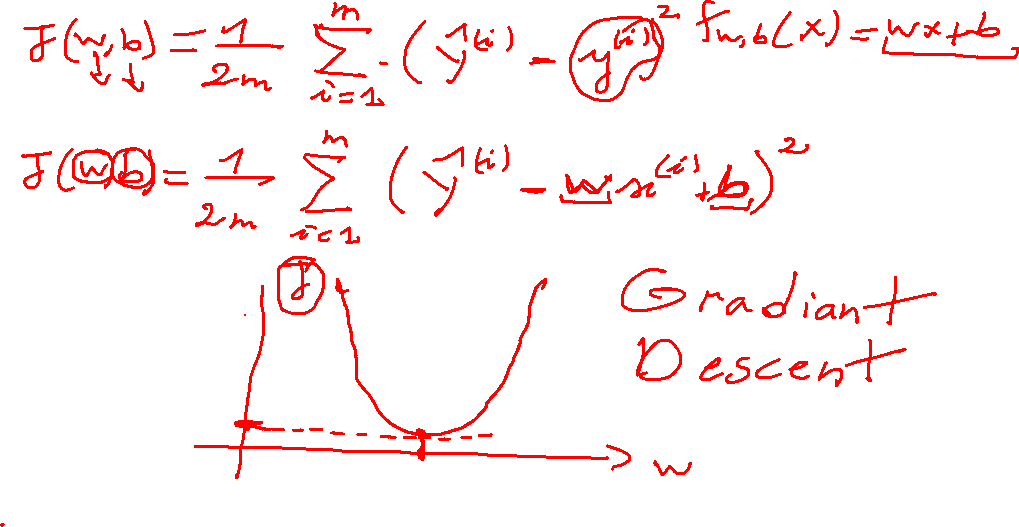 J(w,b) = 1/2m ∑_{i=1}^{m} (ŷ^{(i)} - y^{(i)})^2 f_{w,b}(x) = wx+b
J(w,b) = 1/2m ∑_{i=1}^{m} (ŷ^{(i)} - wx^{(i)}+b)^2
J
Gradiant
Descent
w